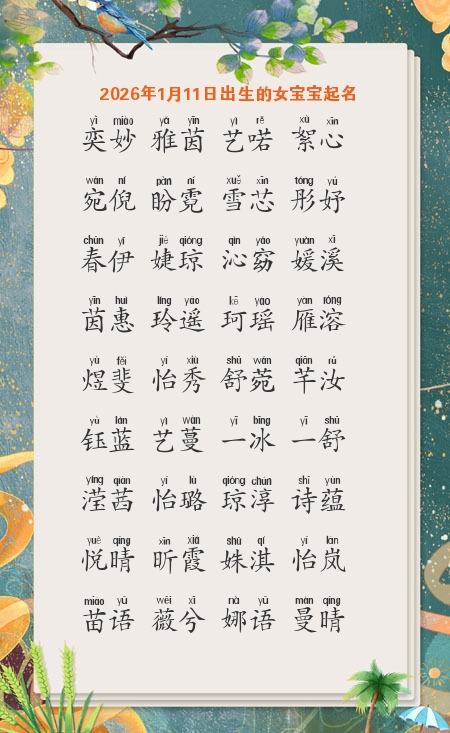 2026年1月11日出生的女宝宝起名
yì miào yǎ yīn yì rě xù xīn
奕妙 雅茵 艺喏 絮心
wǎn ní pàn ní xuě xīn tóng yú
宛倪 盼霓 雪芯 彤妤
chūn yī jié qióng qìn yǎo yuàn xī
春伊 婕琼 沁窈 媛溪
yīn huì líng yáo kē yáo yàn róng
茵惠 玲遥 珂瑶 雁溶
yù fěi yí xiù shū wǎn qiān rǔ
煜斐 怡秀 舒菀 芊汝
yù lán yì wàn yī bīng yī shū
钰蓝 艺蔓 一冰 一舒
yíng qiàn yí lù qióng chún shī yùn
滢茜 怡璐 琼淳 诗蕴
yuè qíng xīn xiá shū qí yí lán
悦晴 昕霞 姝淇 怡岚
miáo yǔ wēi xī nà yǔ màn qíng
苗语 薇兮 娜语 曼晴